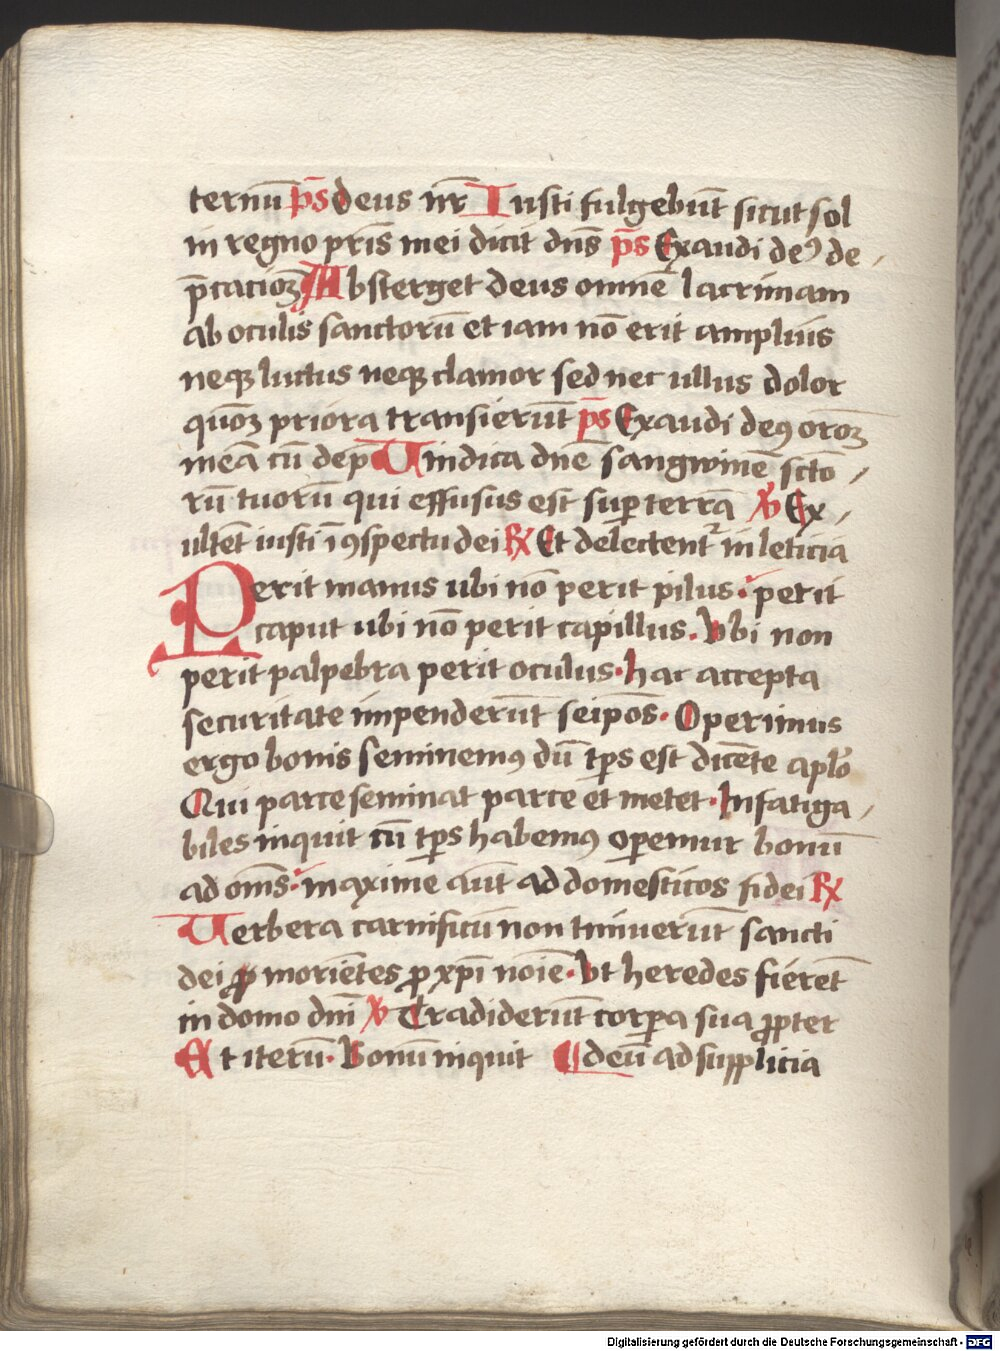 ternū p̄s deus nr̄ Iusti fulgebūt sicut sol
in regno pris̄ mei dicit dns̄ p̄s Exaudi deꝰ de
p̄catiōꝫ Absterget deus omnē lacrimam
ab oculis sanctorū et iam nō erit amplius
neqꝫ luctus neqꝫ clamor sed nec ullus dolor
quōꝫ priora transierūt p̄s Exaudi deꝰ orōꝫ
meā cū dep̄ Uindica dnē sangwinē sctō
rū tuorū qui effusus est suꝑ terrā ℣ Ex
ultēt iusti ī ꝯspectu dei ℟ Et delectent᷑ in leticia
Perit manus ubi nō perit pilus· perit
caput ubi nō perit capillus. Vbi non
perit palpebra perit oculus· hac accepta
securitate impenderūt seipōs· Operimus
ergo bonis seminemꝰ dū tp̄s est dicēte aplō
Qui parce seminat parce et metet· Infatiga
biles inquit cū tp̄s habemꝰ operemur bonū
ad oms̄· maxime aūt ad domesticos fidei ℟
Uerbera carnificū non timuerūt sancti
dei ꝓ moriētes ꝓ xp̄i noīe· Vt heredes fierēt
in domo dnī ℣ Tradiderūt corꝑa sua ꝓpter
Et iterū· Bonū inquit ¶ deū ad supplicia
Digitalisierung gefördert durch die Deutsche Forschungsgemeinschaft - DFG